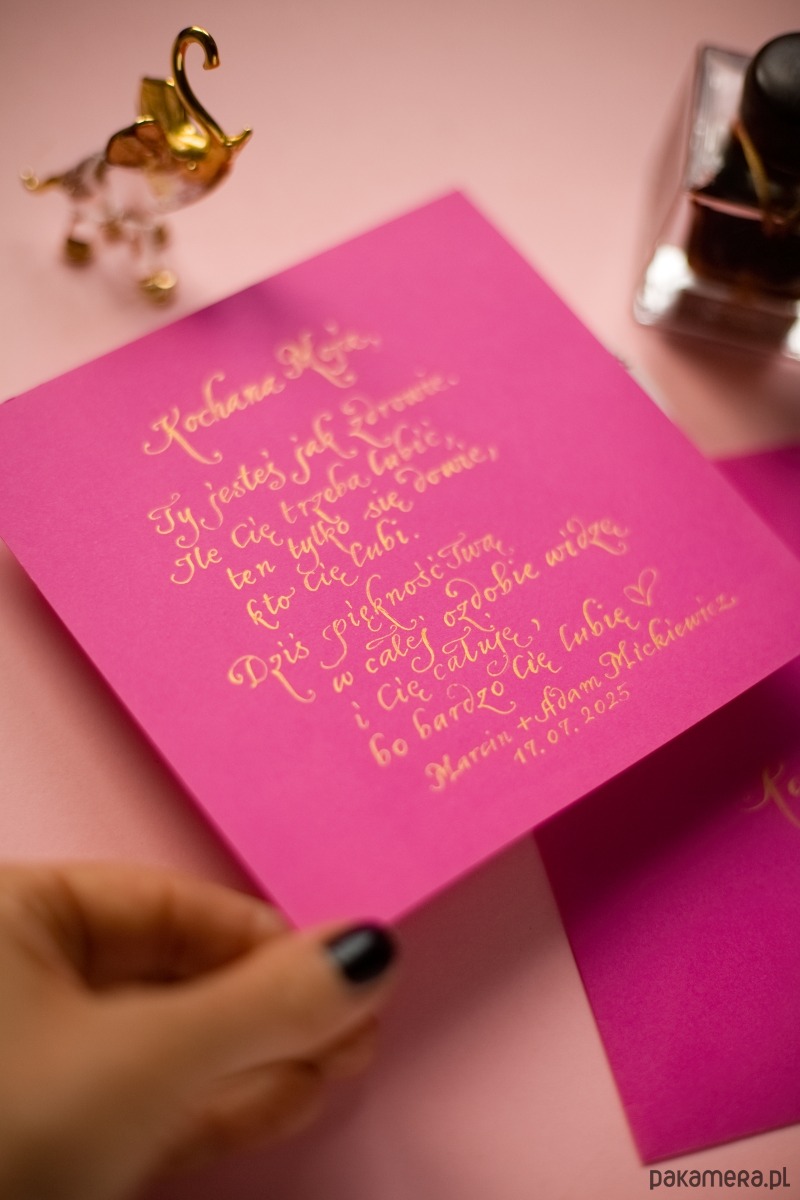 Kochana Moja,
Ty jesteś jak zdrowie.
Ile cię trzeba lubić,
ten tylko się dowie,
kto cię lubi.
Dziś piękność Twą
w całej ozdobie widzę
i cię całuję,
bo bardzo cię lubię
Marcin + Adam Mickiewicz
17.07.2025
pakamera.pl